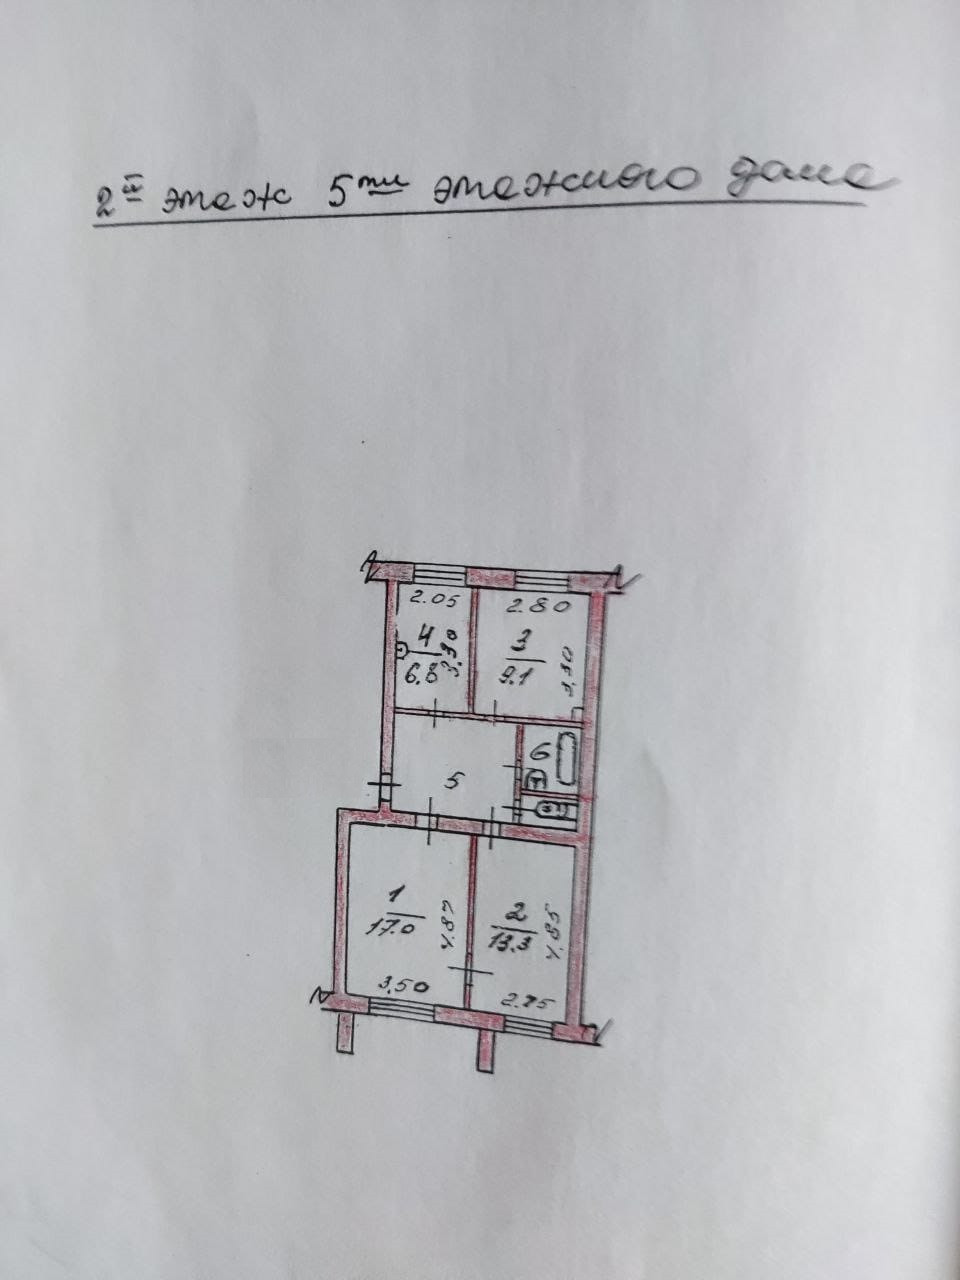 2й этаж 5ти этажного дома
2.05
2.80
4
6.8
3.30
3
9.1
3.30
6
5
1
17.0
4.87
2
13.3
4.85
3.50
2.75